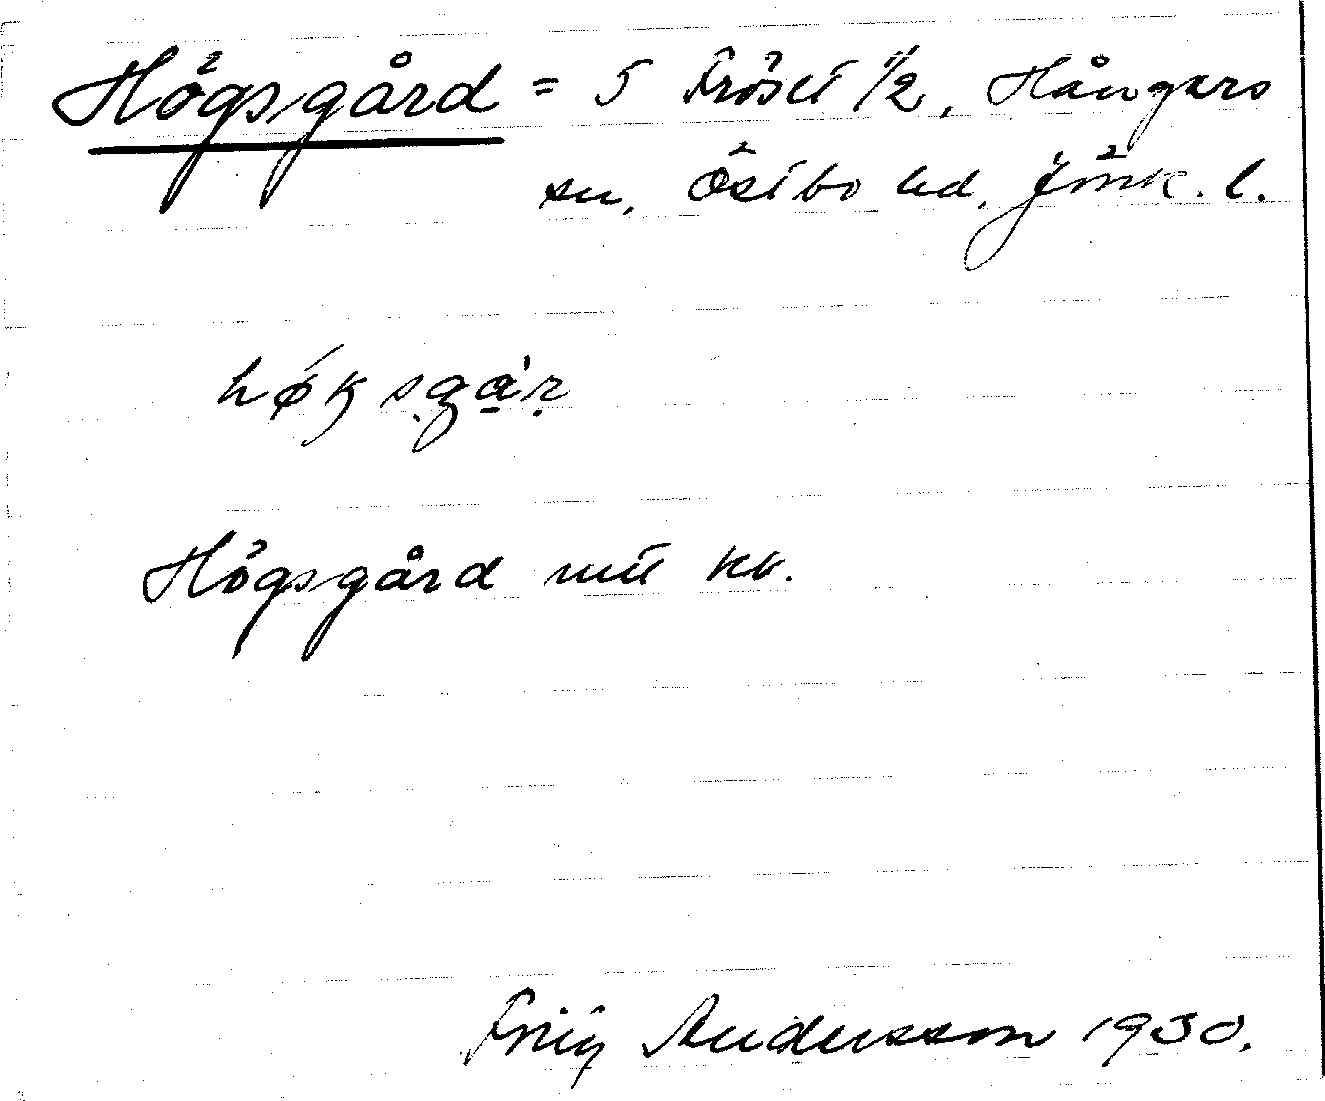 Högsgård = 5 Fröset 1/2, Hångers
sn, Östbo hd, Jönk. l.
høksgår
Högsgård mtl kb.
Frity Andersson 1930.